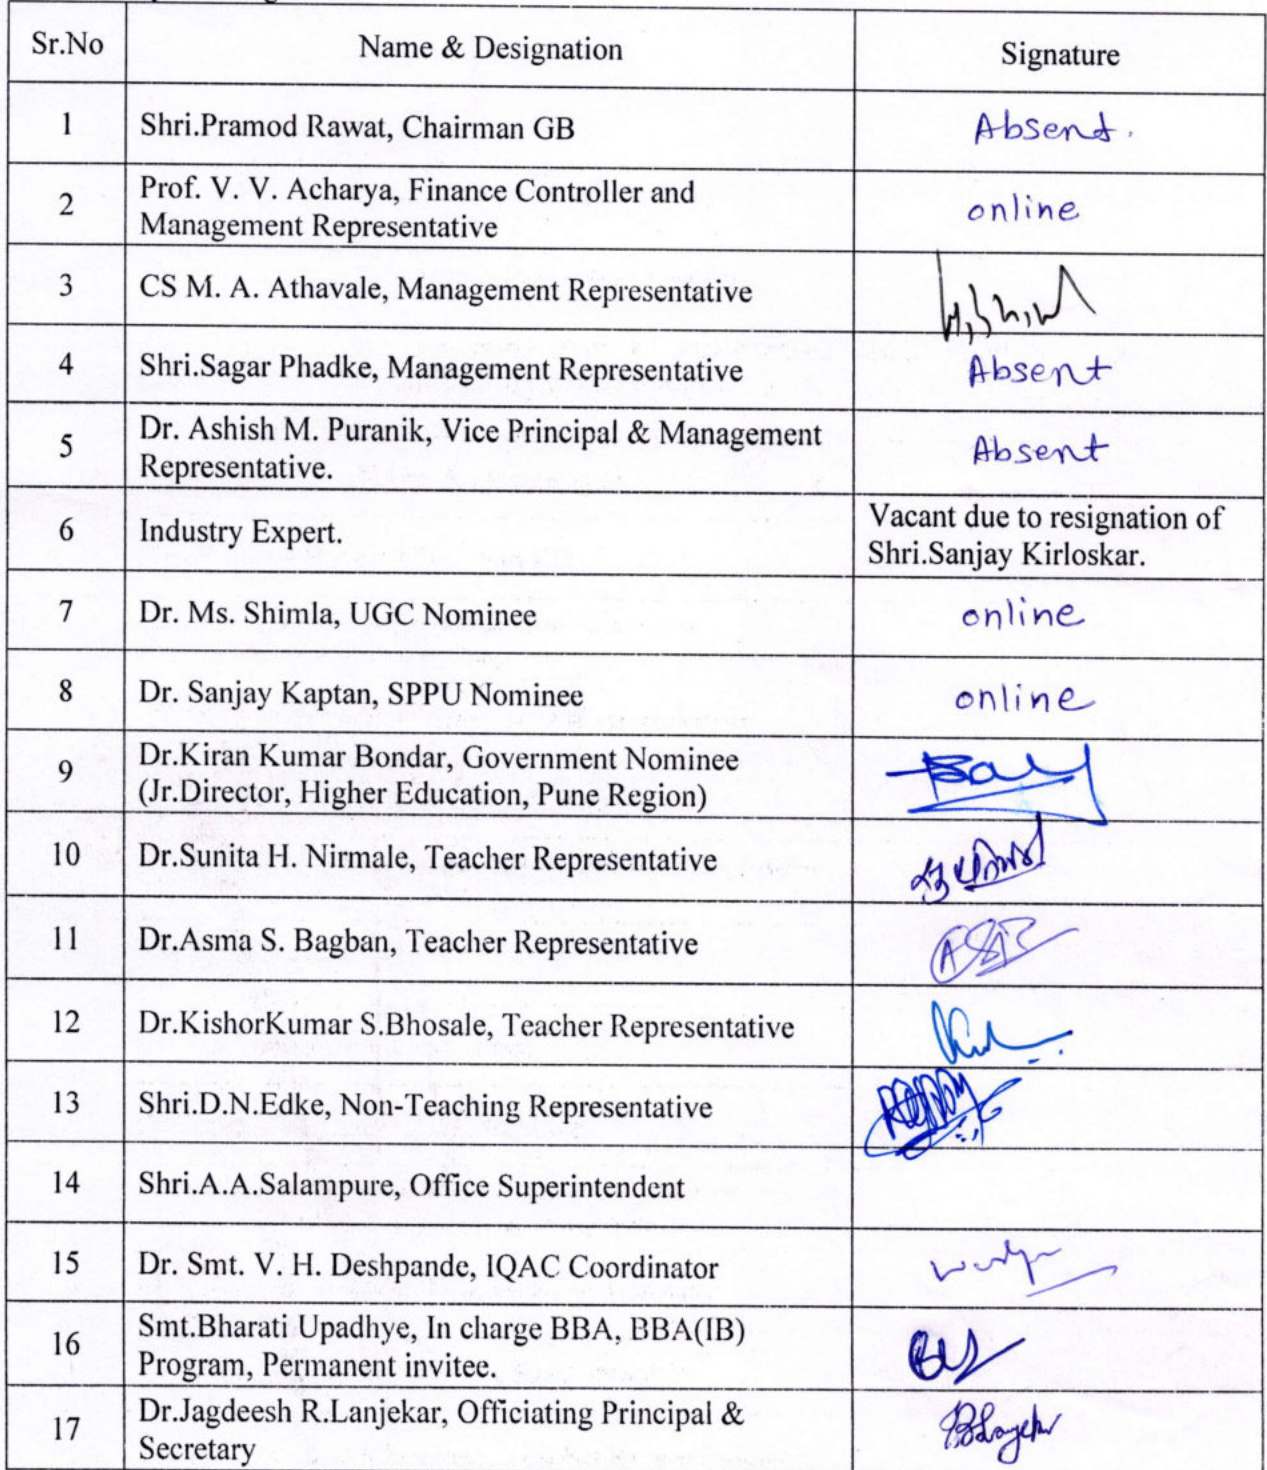 Sr.No Name & Designation Signature
1 Shri.Pramod Rawat, Chairman GB Absent.
2 Prof. V. V. Acharya, Finance Controller and
Management Representative online
3 CS M. A. Athavale, Management Representative
4 Shri.Sagar Phadke, Management Representative Absent
5 Dr. Ashish M. Puranik, Vice Principal & Management
Representative. Absent
6 Industry Expert. Vacant due to resignation of
Shri.Sanjay Kirloskar.
7 Dr. Ms. Shimla, UGC Nominee online
8 Dr. Sanjay Kaptan, SPPU Nominee online
9 Dr.Kiran Kumar Bondar, Government Nominee
(Jr.Director, Higher Education, Pune Region)
10 Dr.Sunita H. Nirmale, Teacher Representative
11 Dr.Asma S. Bagban, Teacher Representative
12 Dr.KishorKumar S.Bhosale, Teacher Representative
13 Shri.D.N.Edke, Non-Teaching Representative
14 Shri.A.A.Salampure, Office Superintendent
15 Dr. Smt. V. H. Deshpande, IQAC Coordinator
16 Smt.Bharati Upadhye, In charge BBA, BBA(IB)
Program, Permanent invitee.
17 Dr.Jagdeesh R.Lanjekar, Officiating Principal &
Secretary